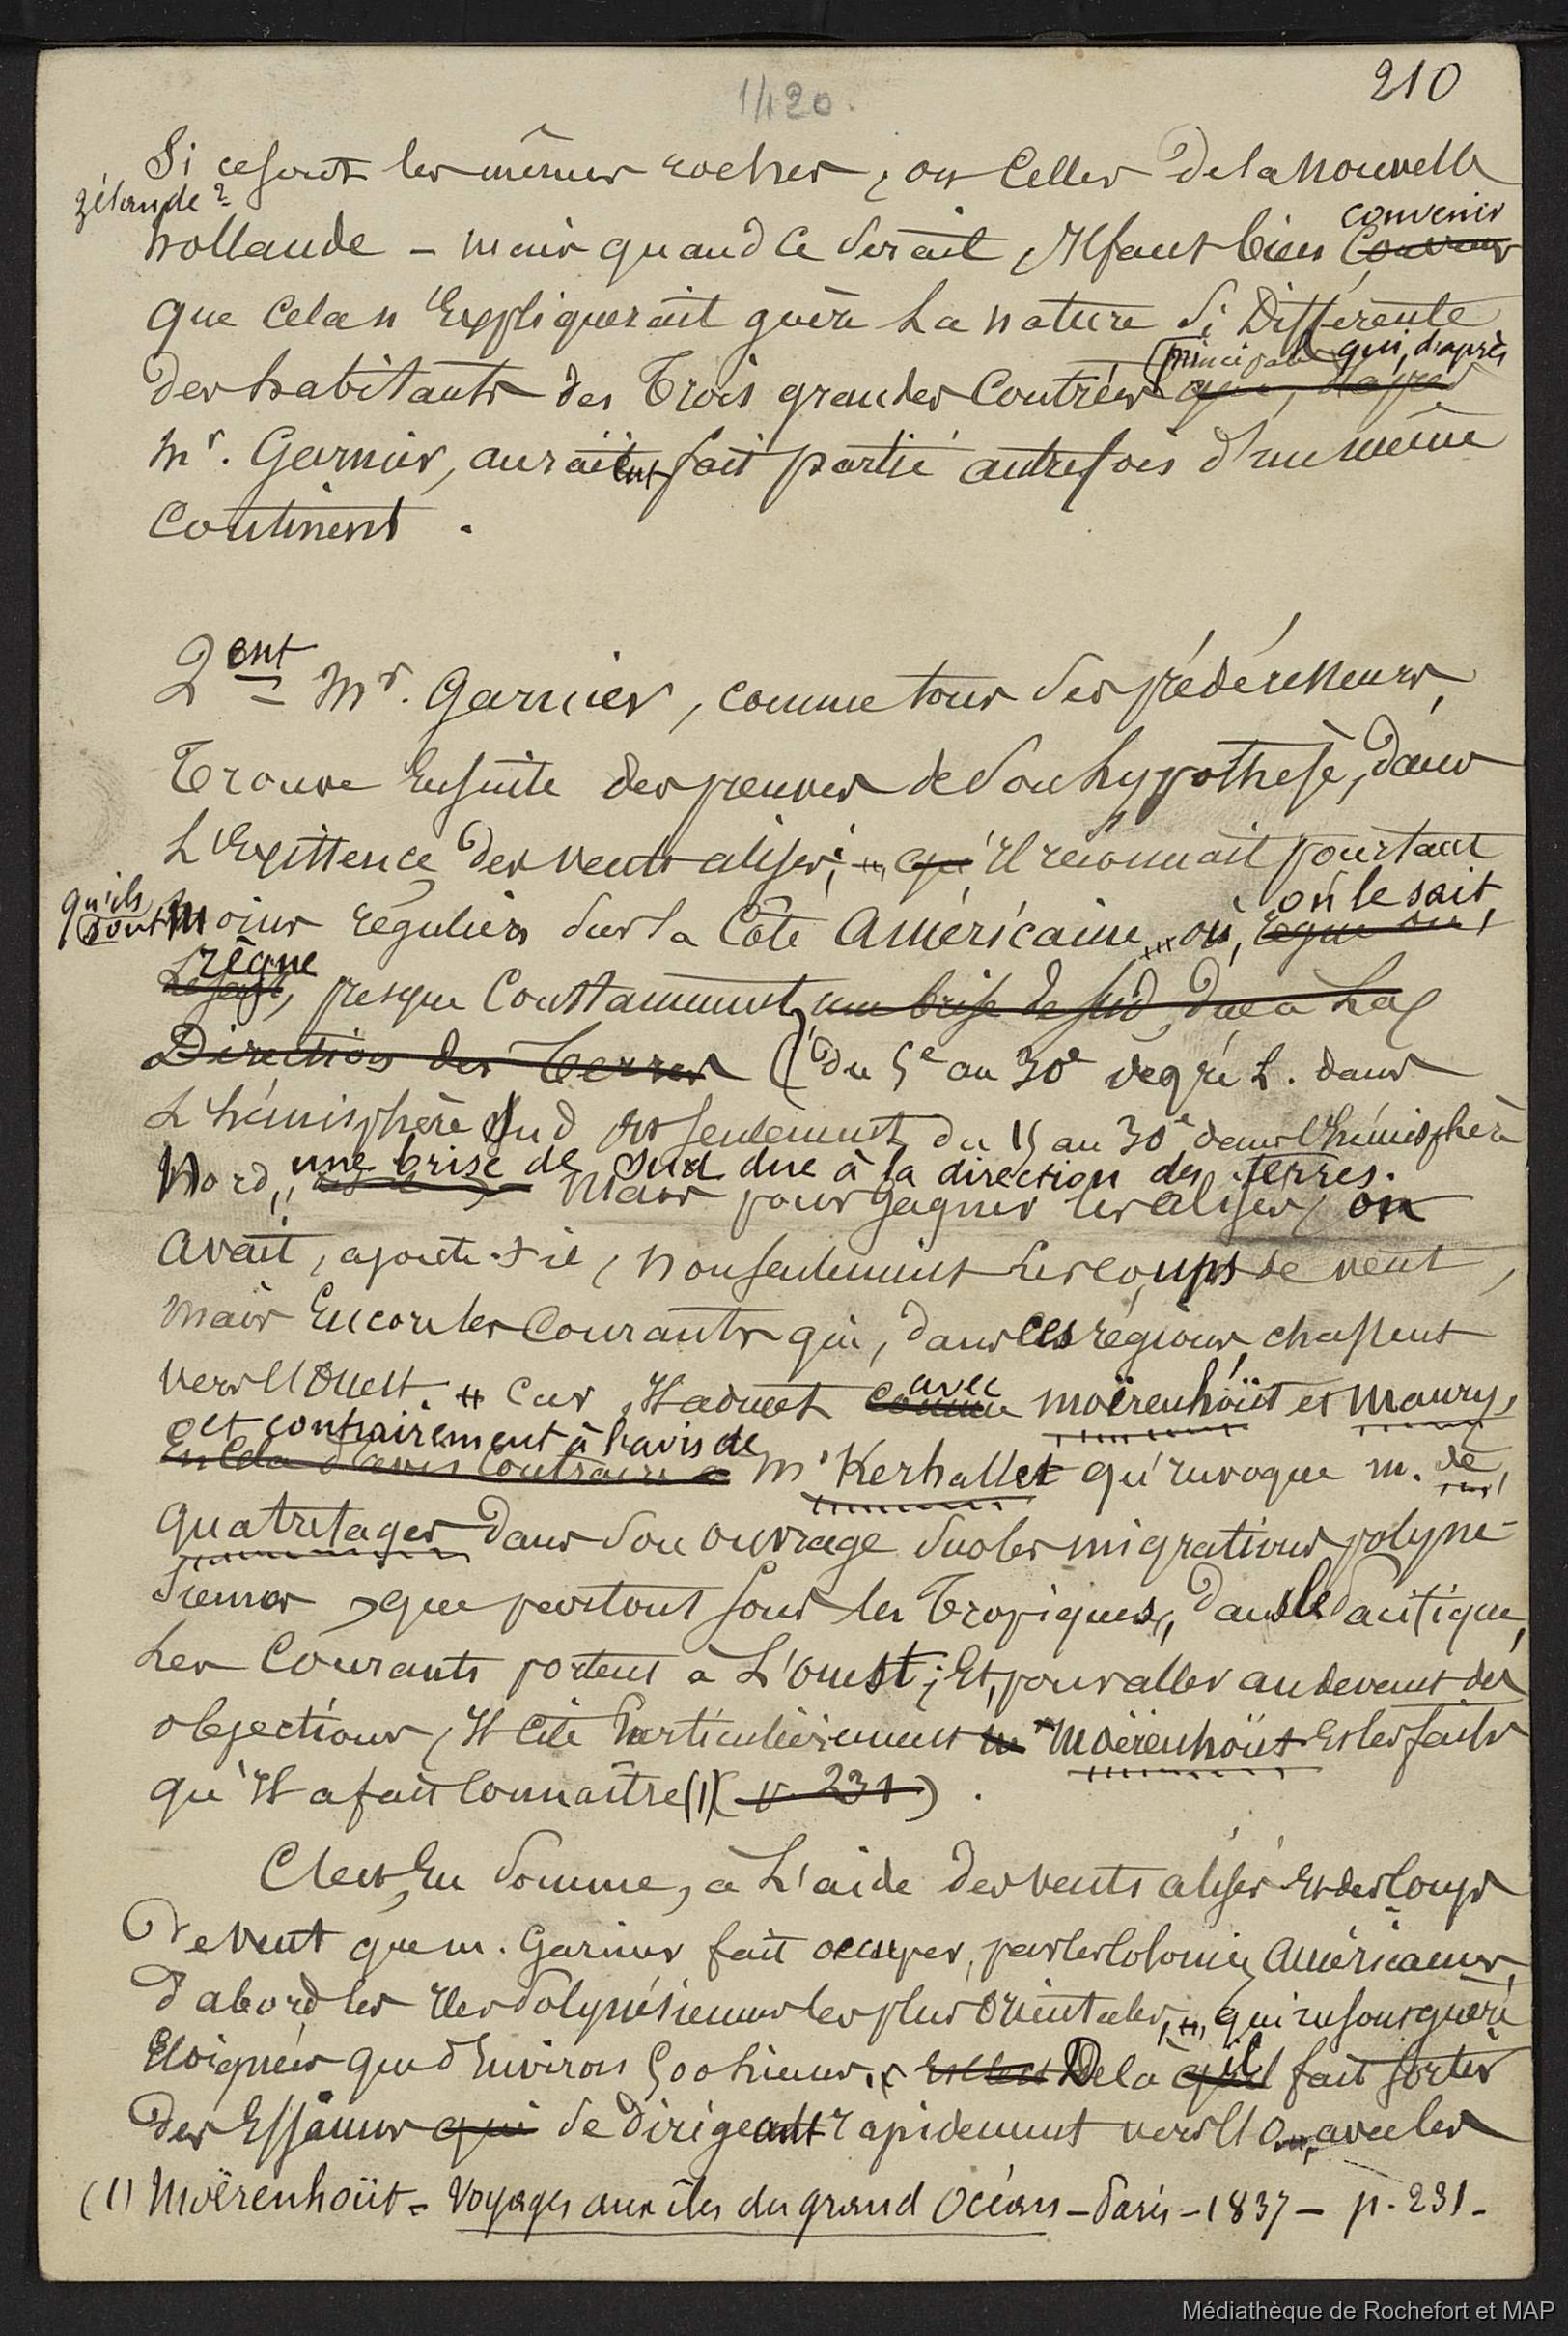 210
1420.
Si ce sont les mêmes roches, ou celles de la nouvelle
zélande ?
hollande – mais quand ce serait, Il faut bien convenir
que cela n'Expliquerait guère La nature si Différente
des habitants des Trois grandes Contrées principales qui, d'après
Mr. Garnier, auraient fait partie autrefois d'un même
Continent.
2ent Mr. Garnier, comme tous ses prédécesseurs,
Trouve Ensuite des preuves de son hypothèse, dans
L'Existence des vents alisés; qu'Il reconnait pourtant
qu'ils sont moins réguliers sur la Côte Américaine où, on le sait,
règne
le sait, presque Constamment, une brise de sud, due à La
Direction des Terres (du 5e au 30e degré L. dans
L'hémisphère sud et seulement du 15 au 30e dans l'hémisphère
Nord, une brise de sud due à la direction des terres.
Mais pour gagner les alisés, on
avait, ajoute-t-il, non seulement Les coups de vent,
mais Encore les Courants qui, dans ces régions, chassent
vers l'Ouest. Car, Il admet avec Moërenhoüt et Maury,
et contrairement à l'avis de
En Cela d'avis Contraire à Mr Kerhallet qu'invoque M. de
Quatrefages dans son ouvrage sur les migrations polyné-
siennes, que partout sous les Tropiques, dans le Pacifique,
Les Courants portent à L'ouest; Et, pour aller au devant des
objections, Il Cite Particulièrement Moërenhoüt Et les faits
qu'Il a fait Connaître (1) (v. 231).
C'est, En somme, à L'aide des vents alisés Et des Coups
de vent que M. Garnier fait occuper, par les Colonies Américaines,
d'abord les Iles Polynésiennes les plus Orientales, qui ne sont guère
Eloignées que d'Environ 500 lieues. De là il fait sortir
des Essaims qui se dirigeant rapidement vers l'O., avec les
(1) Moërenhoüt – Voyages aux îles du grand Océan – Paris – 1837 – p. 231 –
Médiathèque de Rochefort et MAP